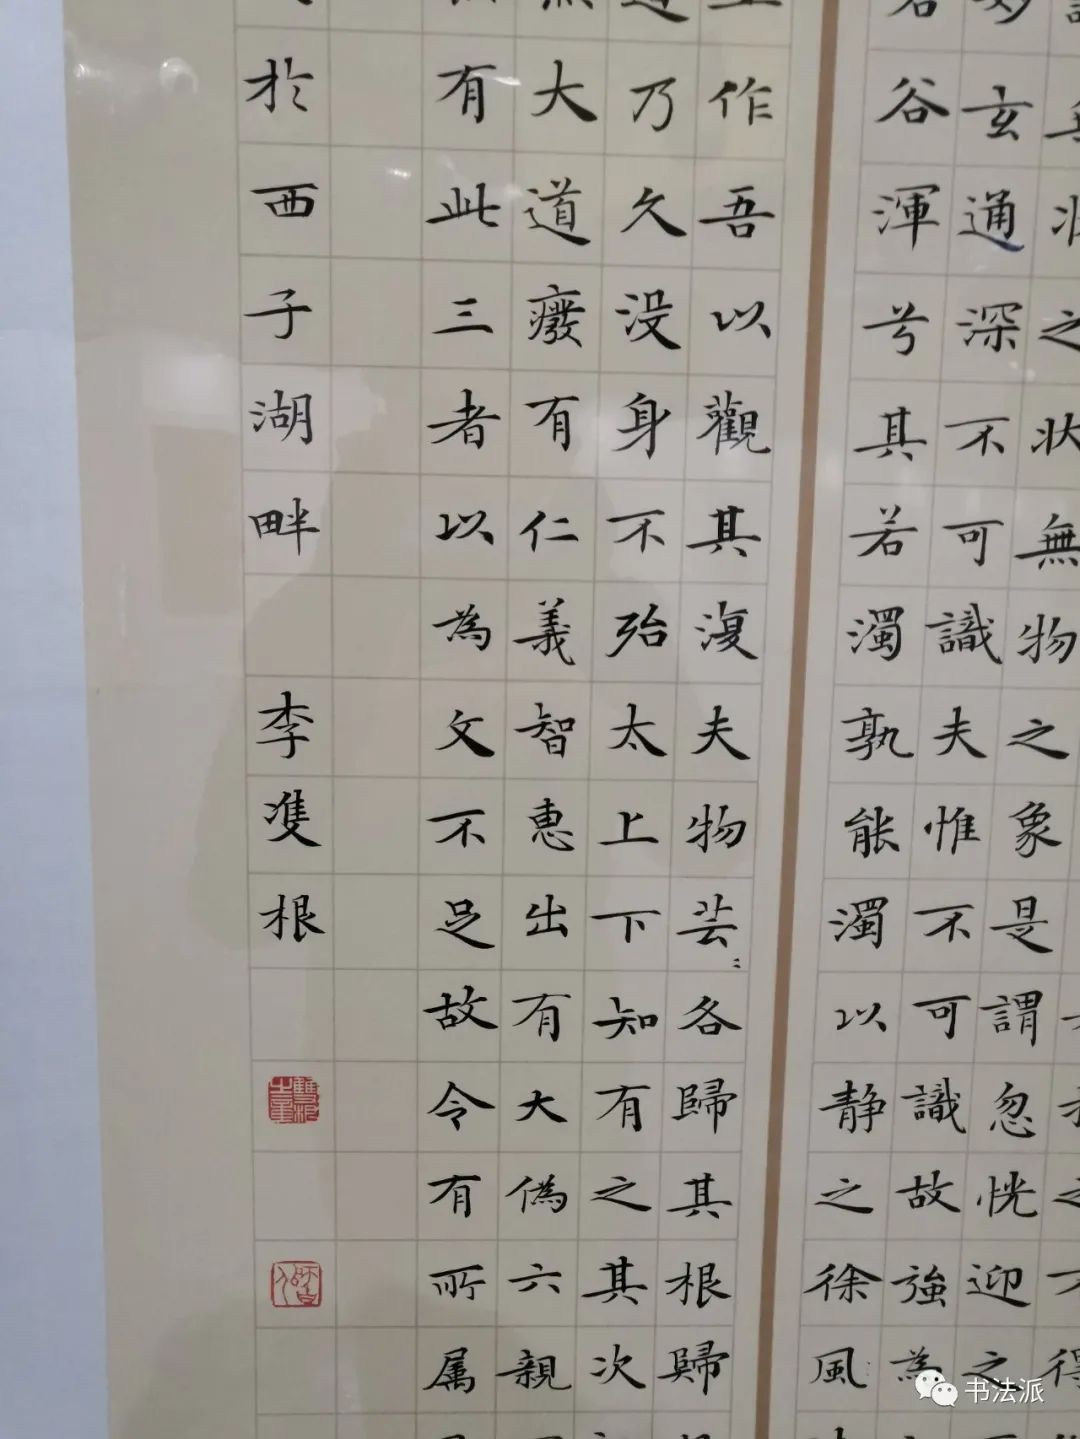 之状無物之象是謂忽恍迎之
妙玄通深不可識夫惟不可識故強為
若谷渾兮其若濁孰能濁以静之徐風
作吾以觀其復夫物芸〻各歸其根歸
乃久没身不殆太上下知有之其次
大道癈有仁義智惠出有大偽六親
此三者以為文不足故令有所属
於西子湖畔 李隻根
书法派